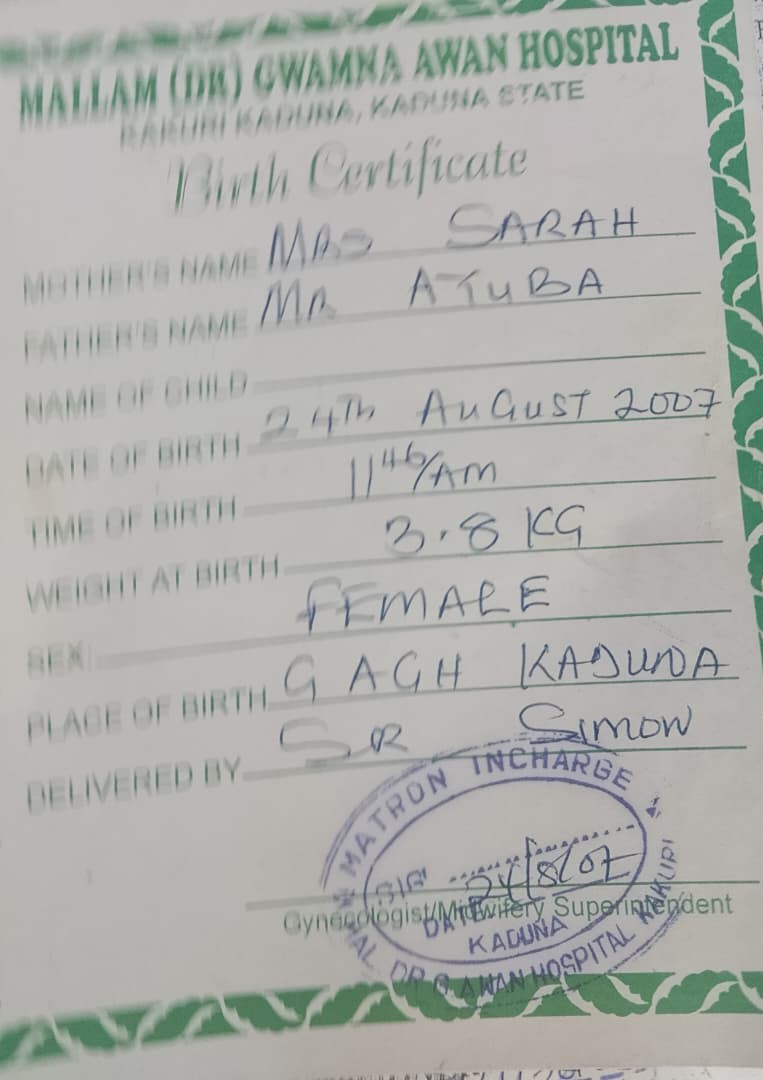 MALLAM (DR) GWAMNA AWAN HOSPITAL
KAKURI KADUNA, KADUNA STATE
Birth Certificate
MOTHER'S NAME MRS SARAH
FATHER'S NAME MR ATUBA
NAME OF CHILD
DATE OF BIRTH 24TH AUGUST 2007
TIME OF BIRTH 11 46/AM
WEIGHT AT BIRTH 3.8 KG
SEX FEMALE
PLACE OF BIRTH G AGH KADUNA
DELIVERED BY SR SIMON
MATRON INCHARGE
SIG
DATE 24/8/07
Gynecologist/Midwifery Superintendent
KADUNA
DR G. AWAN HOSPITAL KAKURI